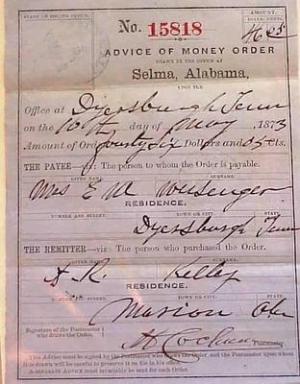 STAMP OF ISSUING OFFICE.
AMOUNT.
No. 15818
ADVICE OF MONEY ORDER
DRAWN BY THE OFFICE AT
Selma, Alabama,
UPON THE
Office at Dyersburgh Tenn
on the 10th day of May, 1873
Amount of Order, Forty Six Dollars and 05 cts.
THE PAYEE:—viz: The person to whom the Order is payable.
GIVEN NAME. SURNAME.
Mrs E M
RESIDENCE.
NUMBER AND STREET. TOWN OR CITY. STATE.
Dyersburgh Tenn
THE REMITTER—viz: The person who purchased the Order.
GIVEN NAME. SURNAME.
A R. Kelley
RESIDENCE.
TOWN OR CITY. STATE.
Marion Ala
Signature of the Postmaster who draws the Order.
Cochran Postmaster
This Advice must be signed by the Postmaster, and the Postmaster upon whom
it is drawn will be careful to preserve it on file in his office.
A SEPARATE ADVICE must invariably be sent for each Order.